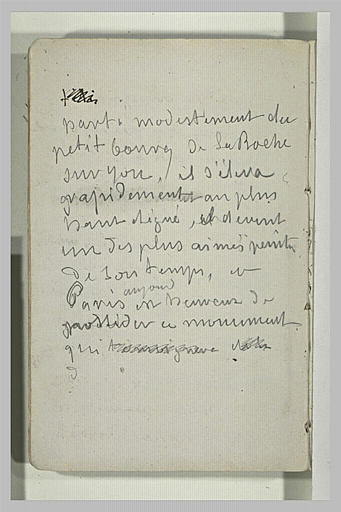 parti modestement du
petit bourg de la Roche
sur yon, il s'éleva
rapidement au plus
haut degré, et devint
un des plus aimés peintre
de son temps, et
aujourd
Paris est heureux de
posséder ce monument
qui